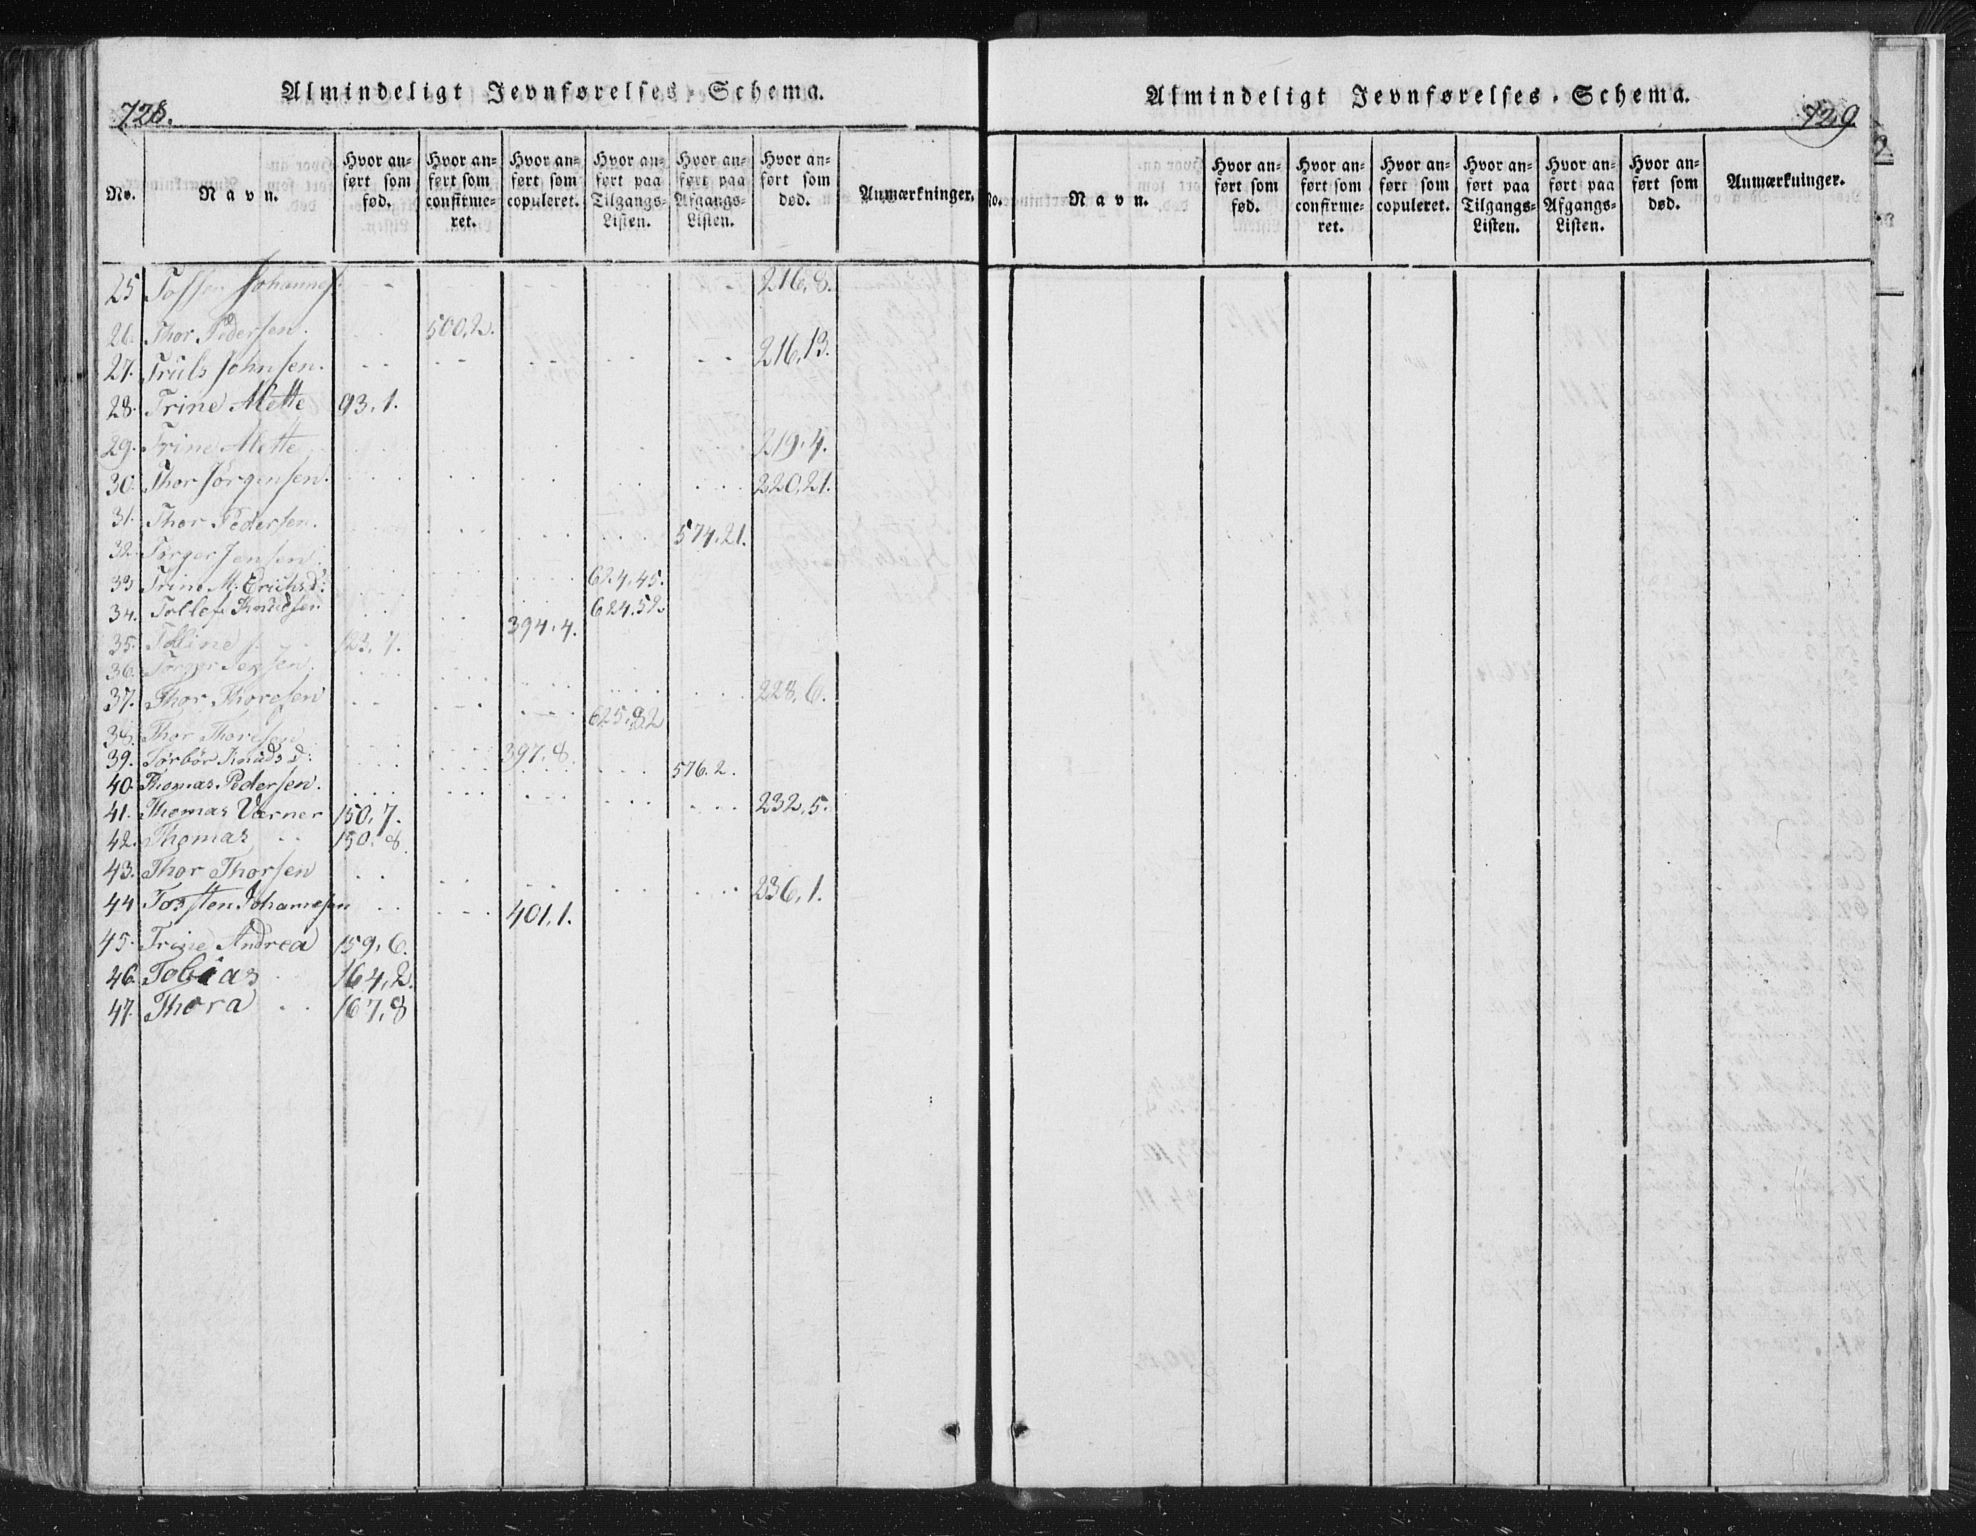 728.
Almindeligt Jevnførelses-Schema.
No.
Navn.
Hvor an-
ført som
fød.
Hvor an-
ført som
confirme-
ret.
Hvor an-
ført som
copuleret.
Hvor an-
ført paa
Tilgangs-
Listen.
Hvor an-
ført paa
Afgangs-
Listen.
Hvor an-
ført som
død.
Anmærkninger.
25 Johannes. 216,8.
26. Thor Pedersen. 500,2.
27. Truls Johnsen. 216,13.
28. Trine Mette 93,1.
29. Trine Mette 219,4.
30. Thor Jörgensen. 220,21.
31. Thor Pedersen. 574,21.
32. Törger Jensen. 624,45.
33 Trine M. Erichsd: 624,52
34. Tollef Knudsen 394,4.
35. Tolline 123,7.
36. Törger Jensen. 228,6.
37. Thor Thoresen 625,82
38. Thor Thoresen 397,8.
39. Törbör Knudsd: 576,2.
40. Thomas Pedersen. 232,5.
41. Thomas Værner 150,7.
42. Thomas 150,8
43. Thor Thorsen 236,1.
44 Torsten Johannesen 401,1.
45. Trine Andrea 159,6.
46. Tobias 164,2.
47. Thora 167,8
Almindeligt Jevnførelses-Schema.
729
No.
Navn.
Hvor an-
ført som
fød.
Hvor an-
ført som
confirme-
ret.
Hvor an-
ført som
copuleret.
Hvor an-
ført paa
Tilgangs-
Listen.
Hvor an-
ført paa
Afgangs-
Listen.
Hvor an-
ført som
død.
Anmærkninger.